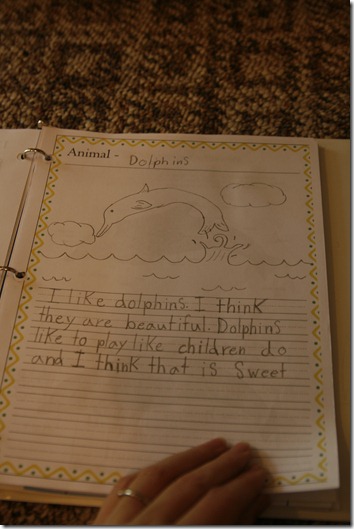 Animal - Dolphins
I like dolphins. I think
they are beautiful. Dolphins
like to play like children do
and I think that is sweet